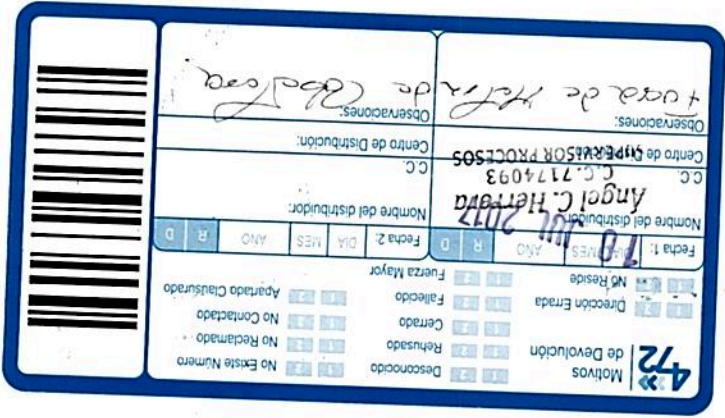 472
Motivos de Devolución
Desconocido
Rehusado
Cerrado
Fallecido
Fuerza Mayor
No Existe Número
No Reclamado
No Contactado
Apartado Clausurado
Dirección Errada
No Reside
Fecha 1: DIA MES AÑO R D
Fecha 2: DIA MES AÑO R D
10 JUL 2017
Nombre del distribuidor:
Angel C. Herrera
C.C.
C.C. 7174093
SUPERVISOR PROCESOS
Centro de Distribución:
Observaciones:
Nombre del distribuidor:
C.C.
Centro de Distribución:
Observaciones:
Fuera de de